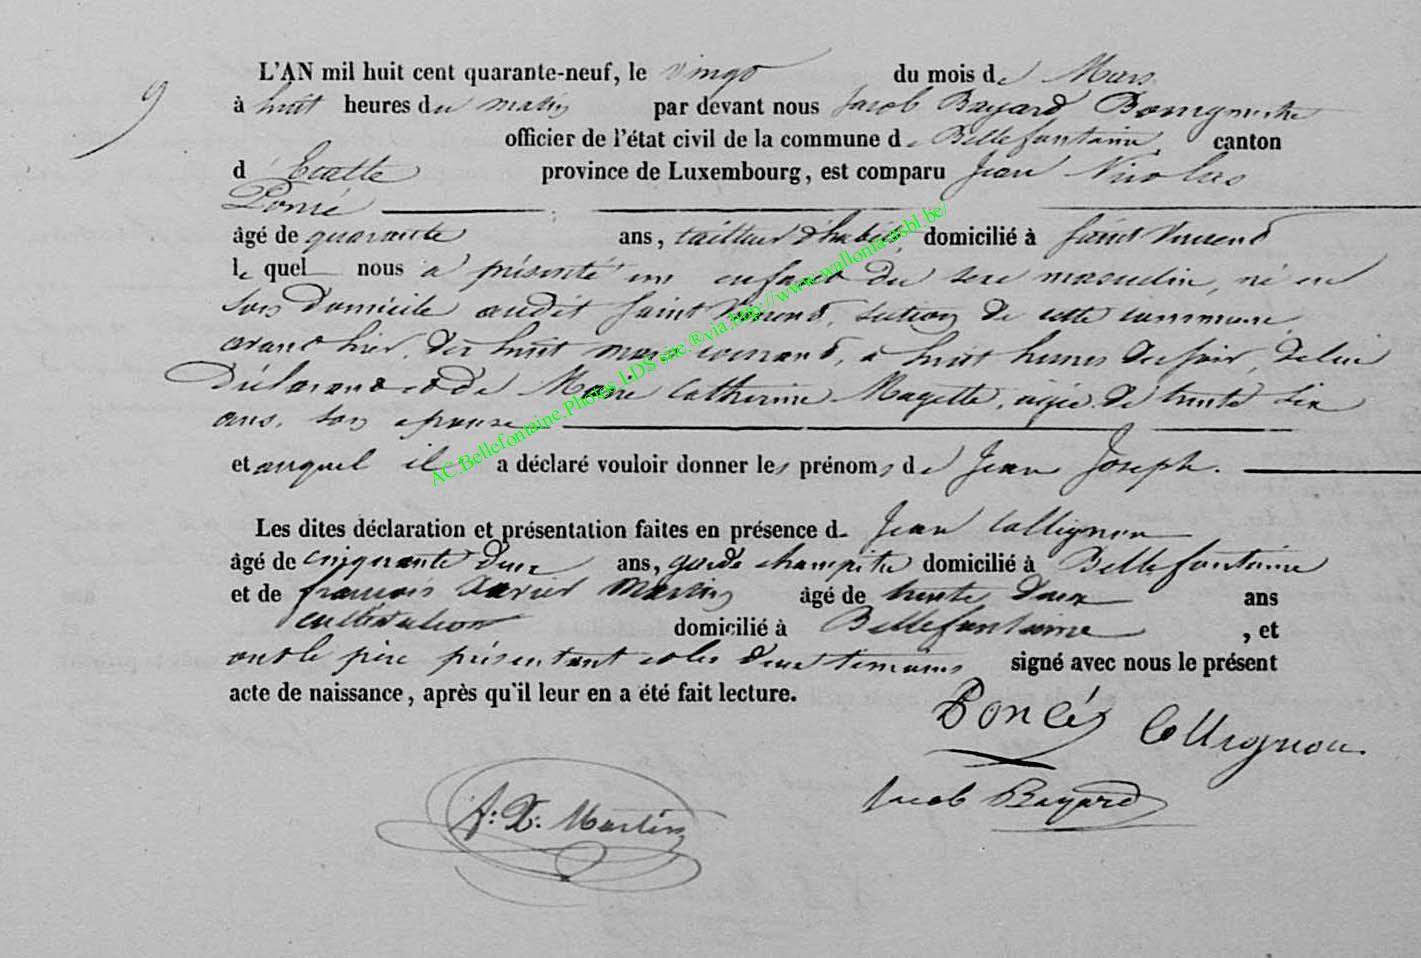 9
L'AN mil huit cent quarante-neuf, le vingt du mois de Mars
à huit heures du matin par devant nous Jacob Bayard Bourgmestre
officier de l'état civil de la commune de Bellefontaine, canton
d'Etalle province de Luxembourg, est comparu Jean Nicolas
Poncé
âgé de quarante ans, tailleur d'habits, domicilié à Saint Vincent
le quel nous a présenté un enfant du sexe masculin, né en
son domicile audit Saint Vincent, section de cette commune,
avant hier, dix huit mars courant, à huit heures du soir, de lui
déclarant et de Marie Catherine Magette, agée de trente six
ans, son epouse
et auquel il a déclaré vouloir donner les prénoms de Jean Joseph.
Les dites déclaration et présentation faites en présence de Jean Collignon
âgé de cinquante deux ans, garde champêtre domicilié à Bellefontaine
et de françois Xavier Martin âgé de trente deux ans
cultivateur domicilié à Bellefontaine, et
ont le père présentant et les deux témoins signé avec nous le présent
acte de naissance, après qu'il leur en a été fait lecture.
Poncé Collignon
Jacob Bayard
f: X: Martin
AC.Bellefontaine.Photos LDS site ®via.http://www.wallonia.asbl.be/